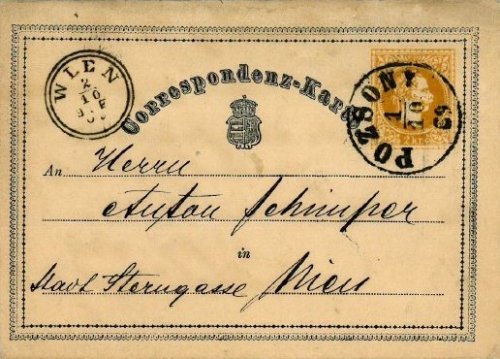 WIEN
2
10
Correspondenz-Karte
POZSONY
1
10
69
An
Herrn
Anton Schimper
in
Stadt Sterngasse Wien